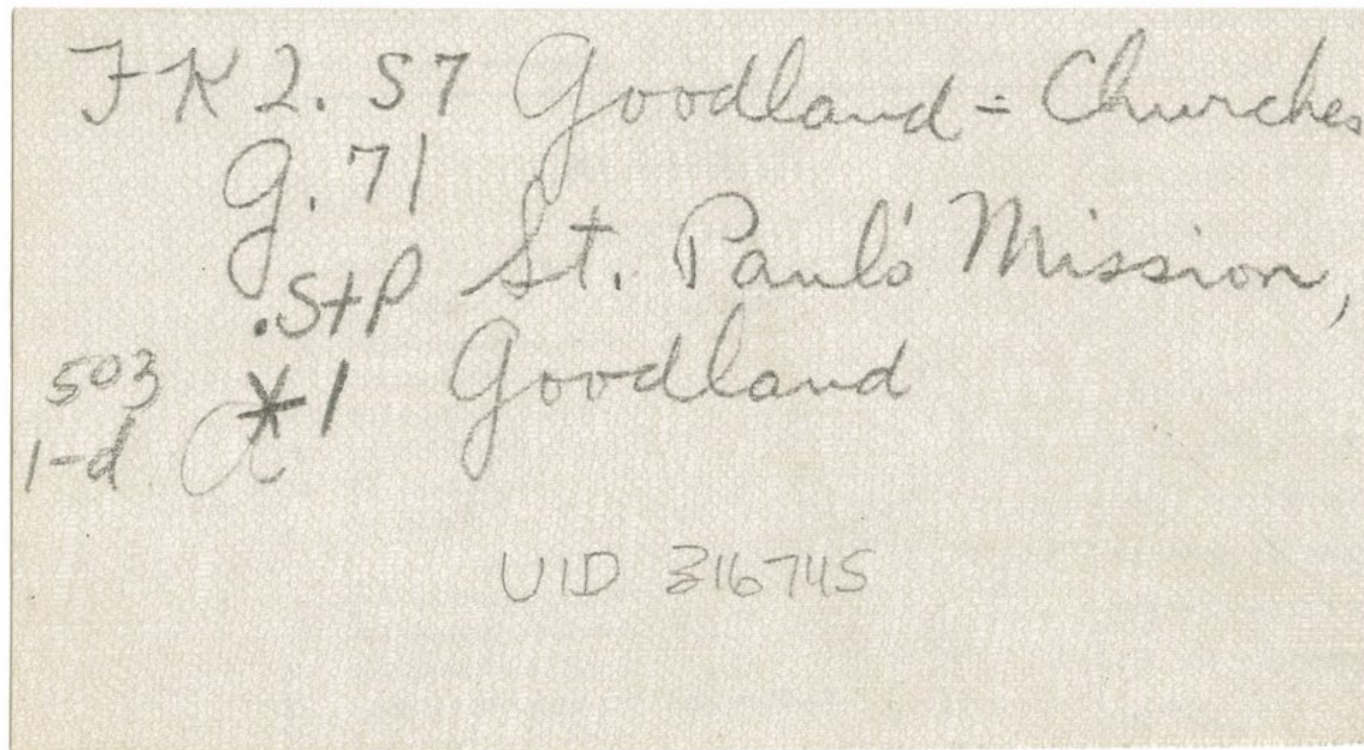 FK2.S7 Goodland = Churches
G.71
.StP St. Paul's Mission,
503 *1 Goodland
1-d a
UID 316745